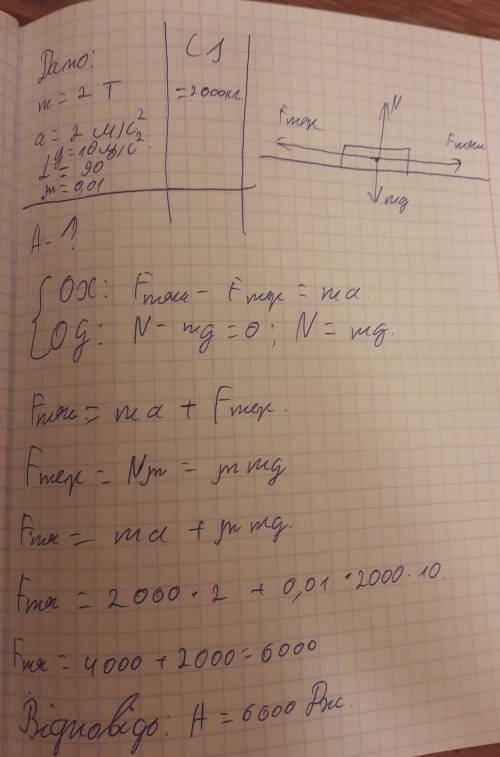 Дано:
СІ
m = 2 Т
= 2000кг.
a = 2 м/с²
g = 10 м/с²
L = 90
μ = 0,01
A - ?
N
Fтер
Fтяги
mg
OX: Fтяги - Fтер = ma.
OY: N - mg = 0; N = mg.
Fтяги = ma + Fтер.
Fтер = Nμ = μmg
Fтяг = ma + μmg.
Fтяг = 2000 · 2 + 0,01 · 2000 · 10.
Fтяг = 4000 + 2000 = 6000
Відповідь: A = 6000 Дж.